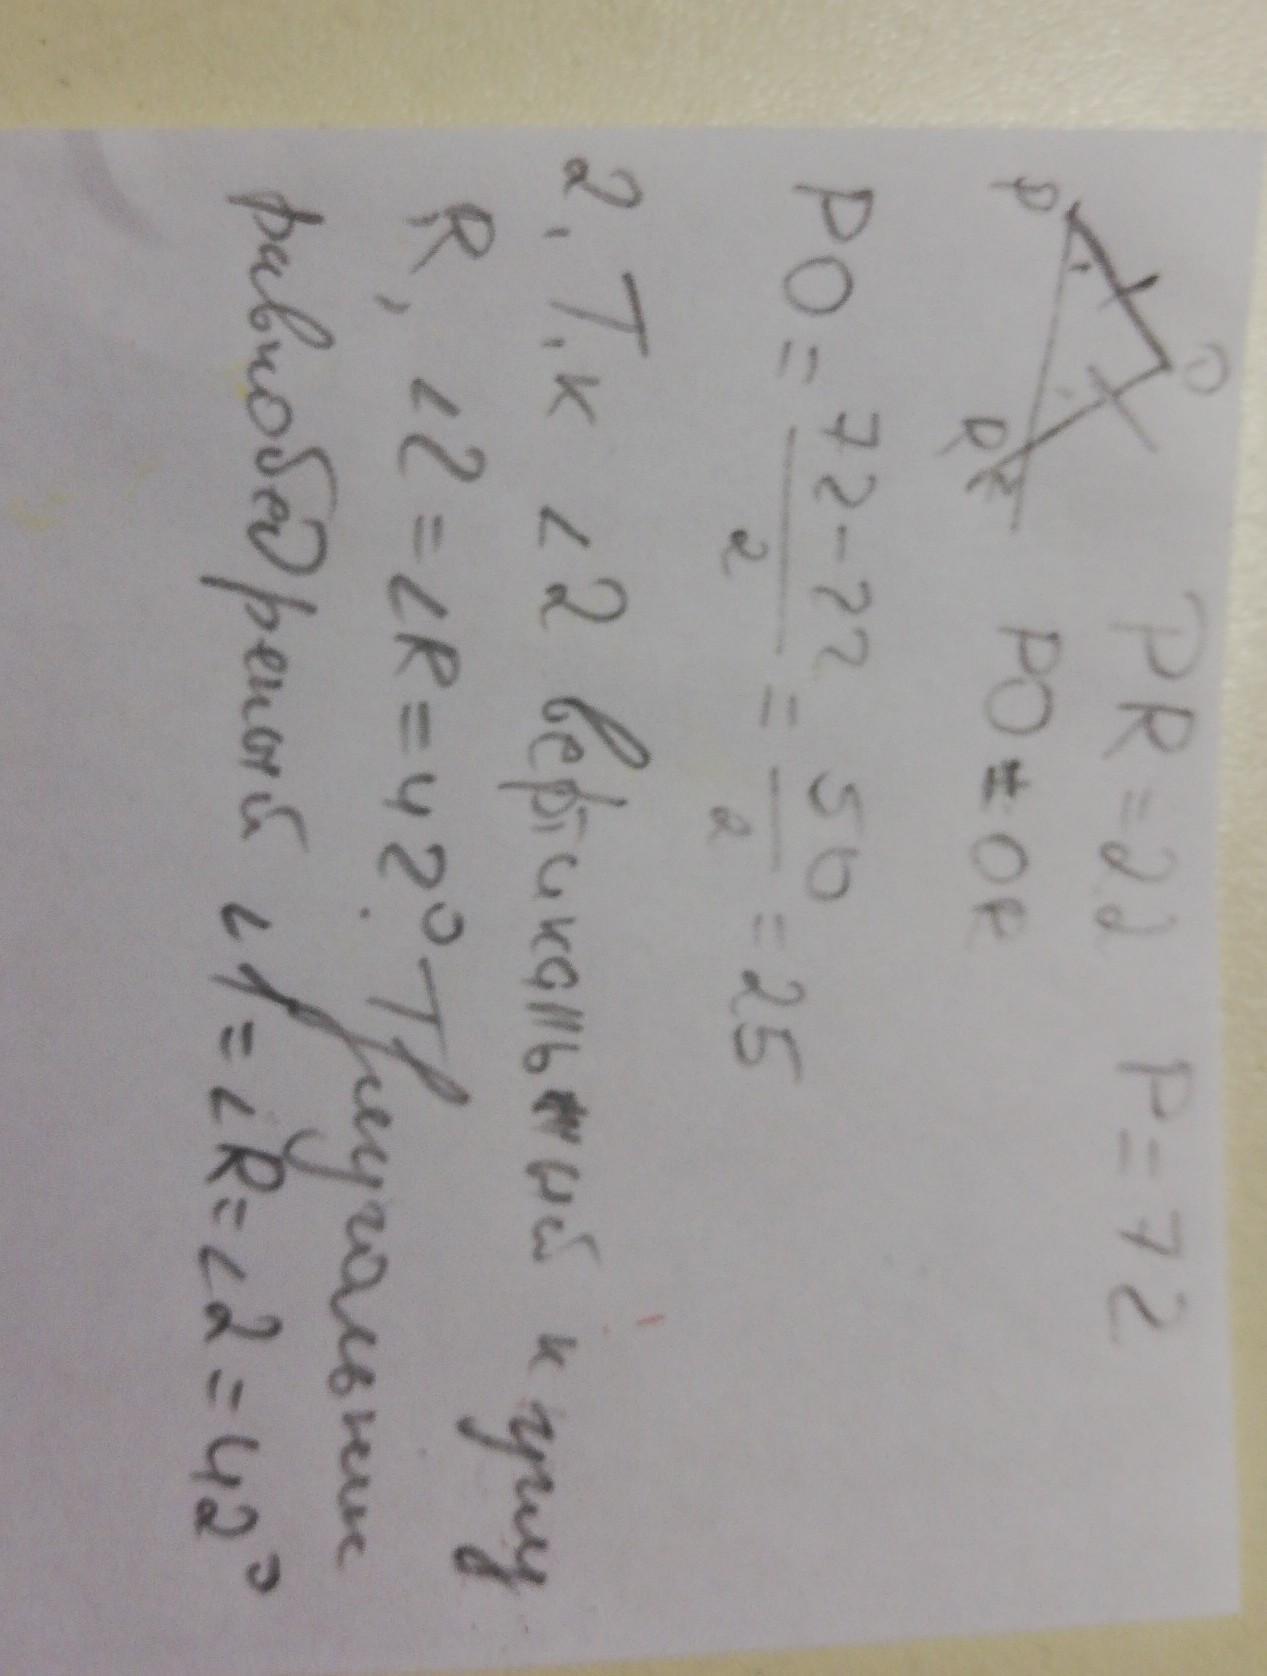 O
P
R
2
PR = 22 P = 72
PO = OR
PO = 72 - 22 / 2 = 50 / 2 = 25
2. Т.к ∠2 вертикальный к углу
R, ∠2 = ∠R = 42° Треугольник
равнобедренный ∠1 = ∠R = ∠2 = 42°